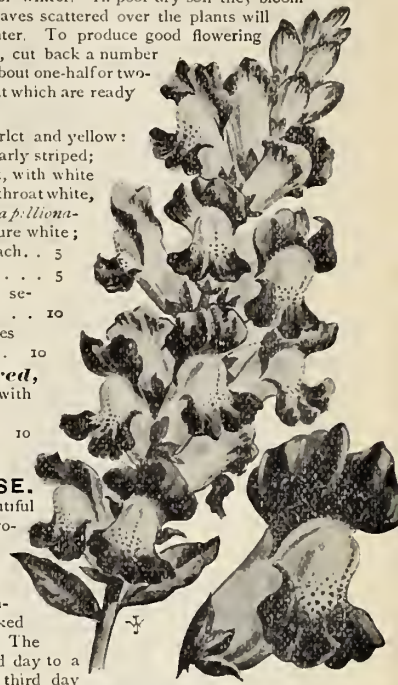 or winter. In poor dry soil they bloom
aves scattered over the plants will
nter. To produce good flowering
, cut back a number
bout one-half or two-
at which are ready
rlct and yellow:
arly striped;
, with white
throat white,
ure white;
ach. . 5
. . . . 5
se-
. . 10
es
. 10
red,
with
10
SE.
utiful
wo-
n-
ked
The
d day to a
third day